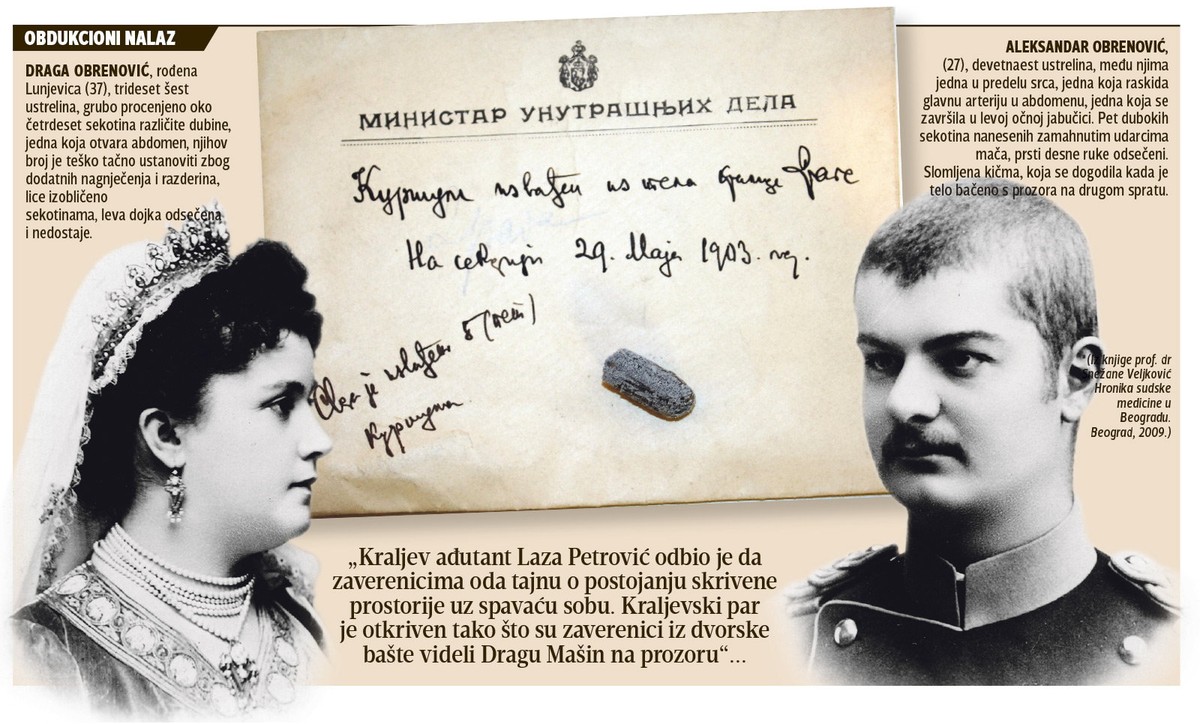 OBDUKCIONI NALAZ
DRAGA OBRENOVIĆ, rođena
Lunjevica (37), trideset šest
ustrelina, grubo procenjeno oko
četrdeset sekotina različite dubine,
jedna koja otvara abdomen, njihov
broj je teško tačno ustanoviti zbog
dodatnih nagnječenja i razderina,
lice izobličeno
sekotinama, leva dojka odsečena
i nedostaje.
МИНИСТАР УНУТРАШЊИХ ДЕЛА
Куршуми извађен из тела краљице Драге
На секцији 29. Маја 1903. год.
Свега је извађено 5 (пет)
Куршума
ALEKSANDAR OBRENOVIĆ,
(27), devetnaest ustrelina, među njima
jedna u predelu srca, jedna koja raskida
glavnu arteriju u abdomenu, jedna koja se
završila u levoj očnoj jabučici. Pet dubokih
sekotina nanesenih zamahnutim udarcima
mača, prsti desne ruke odsečeni.
Slomljena kičma, koja se dogodila kada je
telo bačeno s prozora na drugom spratu.
(Iz knjige prof. dr
Snežane Veljković
Hronika sudske
medicine u
Beogradu.
Beograd, 2009.)
„Kraljev ađutant Laza Petrović odbio je da
zaverenicima oda tajnu o postojanju skrivene
prostorije uz spavaću sobu. Kraljevski par
je otkriven tako što su zaverenici iz dvorske
bašte videli Dragu Mašin na prozoru“...